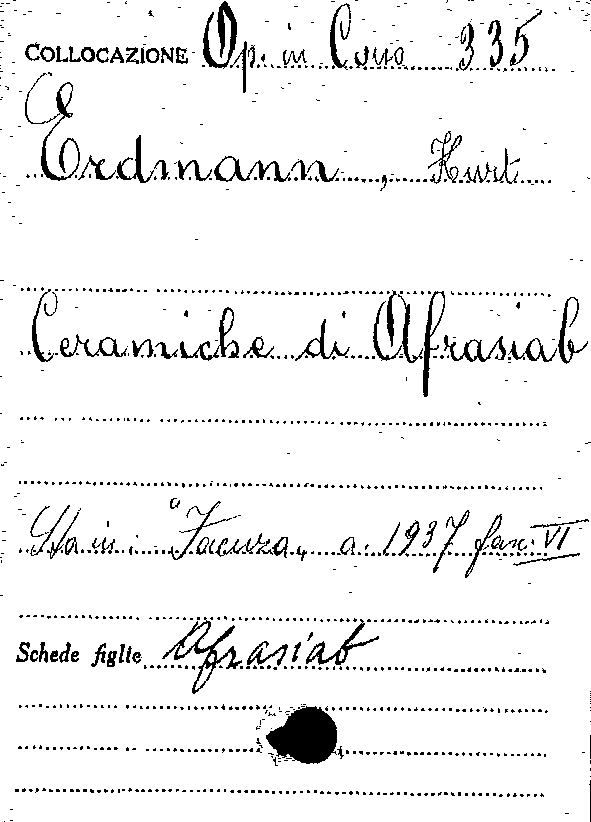 COLLOCAZIONE Op. in Cons 335
Erdmann, Kurt
Ceramiche di Afrasiab
Sta in: "Faenza" a. 1937 fasc. VI
Schede figlie Afrasiab